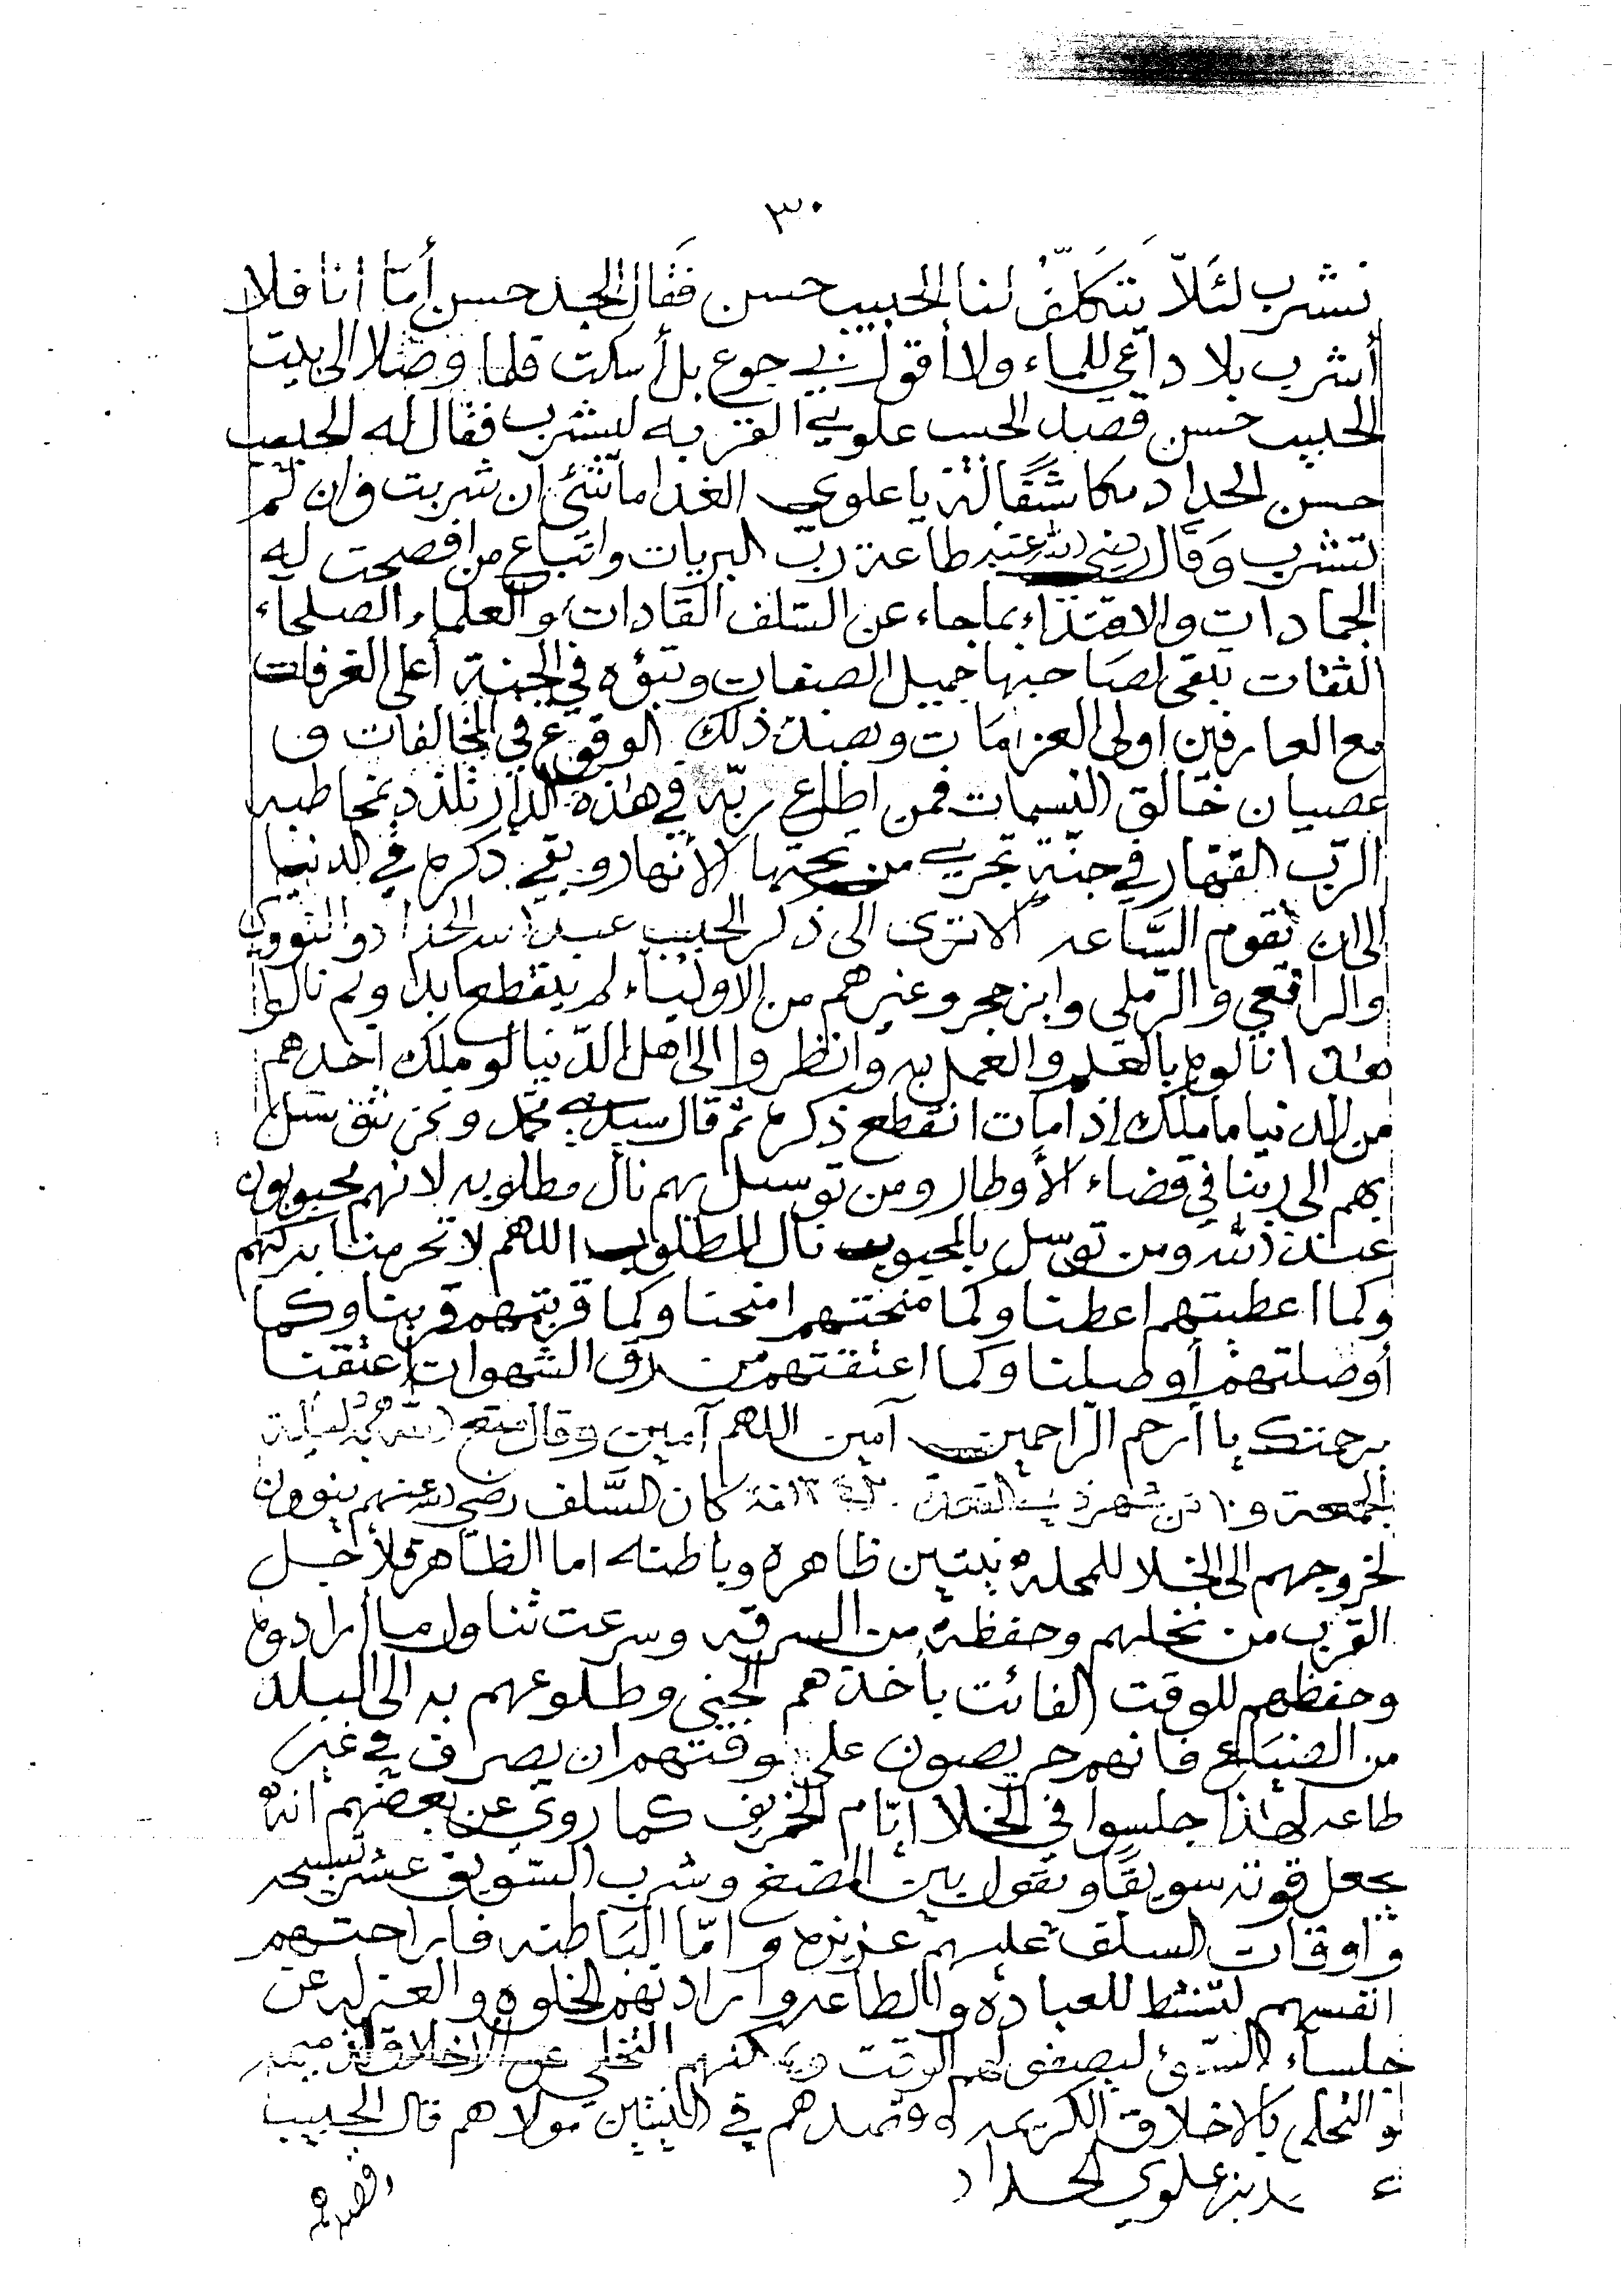 ٣٠
نشرب لئَلاّ يتَكَلّف لنا الحبيب حسن فقَال الجد حسن أمّا انا فلا
أشرب بلا داعي للماء ولا أقول بي جوع بل أسكت فلما وصلا الى بيت
الحبيب حسن قصد الحبيب علوي القربه ليشرب فقال له الحبيب
حسن الحداد مكاشفَةً يا علوي الغدا مانشئ ان شربت وان لم
تشرب وَقال رضي الله عنه طاعة ربّ البريات واتباع من افصحت له
الجمادات والاقتداء بما جاء عن السّلف القادات والعلماء الصلحاء
الثقات تبقى لصَاحبها جميل الصفات وتبؤه في الجنة أعلى الغرفات
مع العارفين اولى العزامَات وبضد ذلك الوقوع في المخالفات و
عصيان خالق النسمات فمن اطاع ربّه في هذه الدار تلذد بمخاطبه
الربّ القهار في جنّة تجري من تحتها الأنهار وبقي ذكره في الدنيا
الى ان تقوم السَّاعه الا ترى الى ذكر الحبيب عبدالله الحداد والنووي
والرافعي والرّملي وابن حجر وغيرهم من الاولياء لم ينقطع ابدا ولم نالوا
هذا نالوه بالعلم والعمل به وانظروا الى اهل الدّنيا لو ملك احدهم
من الدنيا ما ملك إذا مات انقطع ذكره ثم قال سيدي محمّد ونحن نتوسّل
بهم الى ربنا في قضاء الأوطار ومن توسل بهم نال مطلوبه لانهم محبوبون
عند الله ومن توسّل بالمحبوب نال المطلوب اللهم لا تحرمنا بركتهم
وكما اعطيتهم اعطنا وكما منحتهم امنحنا وكما قربتهم قربنا وكما
أوصلتهم أوصلنا وكما اعتقتهم من رق الشهوات اعتقنا
برحمتك يا أرحم الرّاحمين آمين اللهم آمين وقال متع الله به ليلة
الجمعة و١٠ من شهر ذي القعدة كان السَّلف رضي الله عنهم ينوون
لخروجهم الى الخلا للمحلة نيتين ظاهره وباطنه اما الظاهرة فلأجل
القرب من نخلهم وحفظه من السرقه وسرعت تناول ما أرادوه
وحفظهم للوقت الفائت بأخذهم الجني وطلوعهم به الى البلد
من الضيَاع فانهم حريصون على وقتهم ان يصرف في غير
طاعه لهذا جلسوا في الخلا ايّام الخريف كما روي عن بعضهم انه
يجعل قوته سويقًا ويقول بين المضغ وشرب السّويق عشر تسبيحه
واوقات السلف عليهم عزيزه وامّا البَاطنه فاراحتهم
انفسهم لتنشط للعباده والطاعه وارادتهم الخلوه والعزله عن
جلساء السّوئ ليصفى لهم الوقت ويمكنهم التخلي عن الاخلاق الذميمه
والتحلي بالاخلاق الكريمه وقصدهم في النيتين مولاهم قال الحبيب
بن علوي الحداد
وقصده